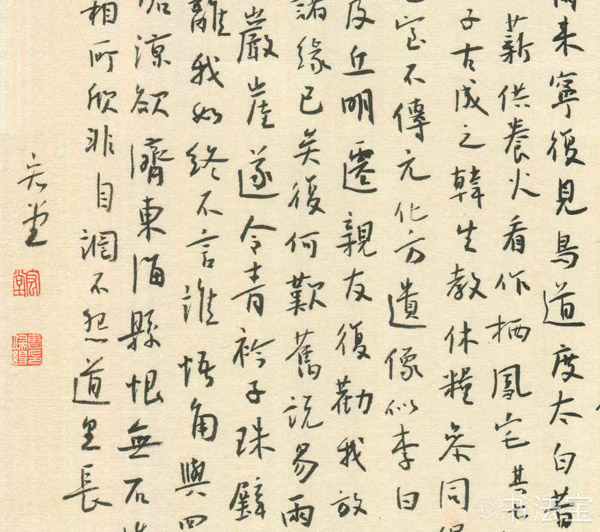 来寧復見鳥道度太白昔
薪供養火看作栖鳳宅其
子古成之韓生教休糧參同
室不傳元化方遺像似李白
及丘明遷親友復勸我放
諸緣已矣復何歎舊說易兩
巖崖遂令青衿子珠璧
離我如終不言誰悟角與四
涼欲濟東海縣恨無石
相所欣非自謂不怨道里長
堂
©书法宝